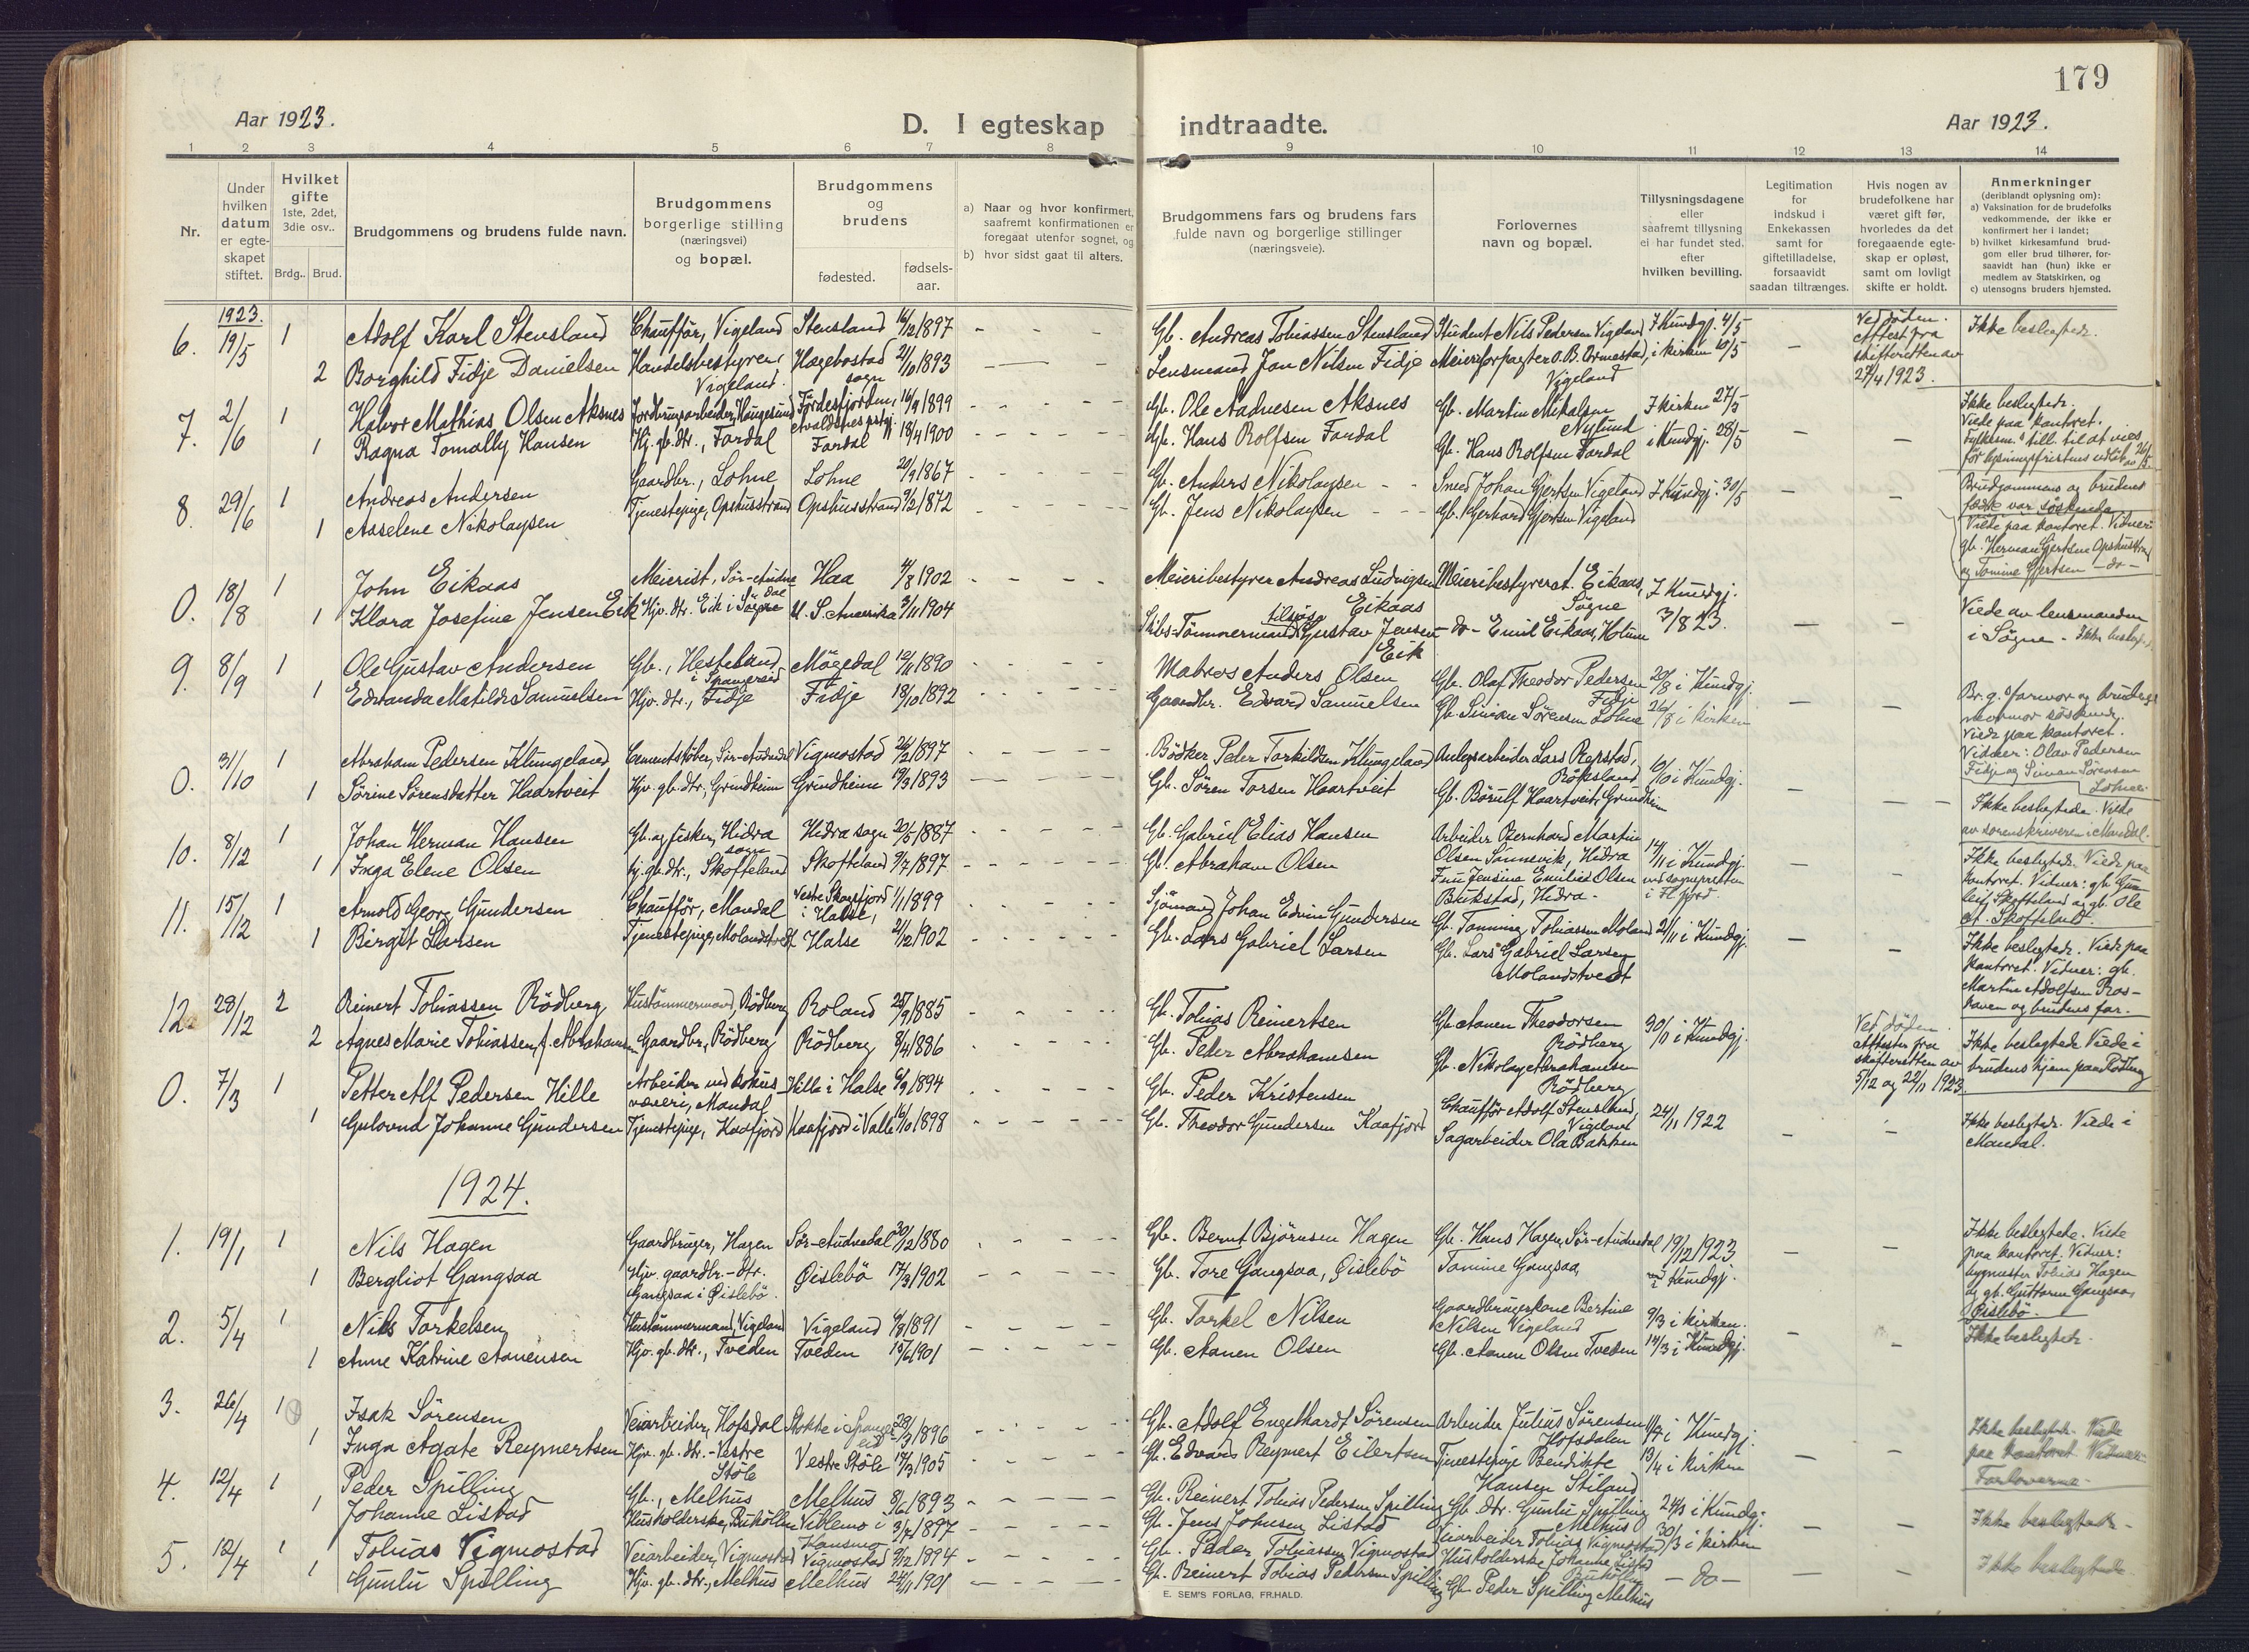 179
Aar 1923.
D. I egteskap indtraadte.
Aar 1923.
1 2 3 4 5 6 7 8 9 10 11 12 13 14
Nr.
Under hvilken datum er egteskapet stiftet.
Hvilket gifte 1ste, 2det, 3die osv..
Brdg.. Brud.
Brudgommens og brudens fulde navn.
Brudgommens borgerlige stilling (næringsvei) og bopæl.
Brudgommens og brudens
fødested.
fødsels-aar.
a) Naar og hvor konfirmert, saafremt konfirmationen er foregaat utenfor sognet, og
b) hvor sidst gaat til alters.
Brudgommens fars og brudens fars fulde navn og borgerlige stillinger (næringsveie).
Forlovernes navn og bopæl.
Tillysningsdagene eller saafremt tillysning ei har fundet sted, efter hvilken bevilling.
Legitimation for indskud i Enkekassen samt for giftetilladelse, forsaavidt saadan tiltrænges.
Hvis nogen av brudefolkene har været gift før, hvorledes da det foregaaende egteskap er opløst, samt om lovligt skifte er holdt.
Anmerkninger (deriblandt oplysning om):
a) Vaksination for de brudefolks vedkommende, der ikke er konfirmert her i landet;
b) hvilket kirkesamfund brudgom eller brud tilhører, forsaavidt han (hun) ikke er medlem av Statskirken, og
c) utensogns bruders hjemsted.
1923.
6. 19/5 1 Adolf Karl Stensland Chauffør, Vigeland Stensland 16/12 1897 Gb. Andreas Tobiassen Stensland Student Nils Pedersen Vigeland I Kundgj. 4/5 Ved døden. Attest fra skifteretten av 27/4 1923. Ikke beslegtede.
2 Borghild Fidje Danielsen Handelsbestyrer, Vigeland. Hægebostad sogn 21/10 1893 Lensmand Jan Nilsen Fidje Meieriforpagter O. B. Ormestad, Vigeland i kirken 10/5
7. 2/6 1 Halvor Mathias Olsen Aksnes Jordbruksarbeider, Haugesund Førdesfjorden, Avaldsnes prstgj. 16/9 1899 Gb. Ole Aadnesen Aksnes Gb. Martin Mikalsen Nylund I kirken 27/5 Ikke beslegtede. Viede paa kontoret.
1 Ragna Tomally Hansen Hj. gb. dtr., Fardal Fardal 18/4 1900 Gb. Hans Rolfsen Fardal Gb. Hans Rolfsen Fardal i Kundgj. 28/5
8. 29/6 1 Andreas Andersen Gaardbr., Lohne Lohne 20/9 1867 Gb. Anders Nikolaysen Smed Johan Gjertsen Vigeland I Kundgj. 30/5 Brudgommens og brudens fædre var søskende
1 Asselene Nikolaysen Tjenestepige, Opshusstrand Opshusstrand 9/2 1872 Gb. Jens Nikolaysen Gb. Gerhard Gjertsen Vigeland Viede paa kontoret. Vidner: gb. Herman Gjertsen Opshusstrand og Tomine Gjertsen - do -
0. 18/8 1 John Eikaas Meierist, Sør-Audnedal Haa 4/8 1902 Meieribestyrer Andreas Ludvigsen Eikaas Meieribestyrer A. Eikaas, Søgne I Kundgj. 3/8 23.
1 Klara Josefine Jensen Eik Hjv. dtr. Eik i Søgne U. S. Amerika 3/11 1904 Skibs-Tømmermand tilsjøs Gustav Jensen Eik - do - Emil Eikaas, Holum Viede av lensmanden i Søgne - Ikke beslegt.
9. 8/9 1 Ole Gustav Andersen Gb., Hesteland i Spangereid Møgedal 12/11 1890 Matros Anders Olsen Gb. Olaf Theodor Pedersen Fidje 20/8 i Kundgj. Br.g.s farmor og brudens mormor søskende.
1 Edvanda Matilde Samuelsen Hjv. dtr., Fidje Fidje 18/10 1892 Gaardbr. Edvard Samuelsen Gb. Simon Sørensen Lohne 26/8 i kirken Viede paa kontoret. Vidner: Olav Pedersen Fidje og Simon Sørensen Lohne.
0. 31/10 1 Abraham Pedersen Klungeland Cementstøber, Sør-Audnedal Vigmostad 26/2 1897 Bødker Peder Torkildsen Klungeland Anlegsarbeider Lars Repstad, Røksland 10/10 i Kundgj.
1 Sørine Sørensdatter Haartveit Hjv. gb. dtr., Grindheim Grindheim 19/3 1893 Gb. Søren Torsen Haartveit Gb. Børulf Haartveit, Grindheim Ikke beslegtede. Viede av sorenskriveren i Mandal.
10. 8/12 1 Johan Herman Hansen Gb. og fisker, Hidra sogn Hidra sogn 20/5 1887 Gb. Gabriel Elias Hansen Arbeider Bernhard Martin Olsen Sannevik, Hidra 14/11 i Kundgj.
1 Inga Elene Olsen hj. gb. dtr., Skofteland Skofteland 9/7 1897 Gb. Abraham Olsen Fru Jensine Emilie Olsen Bukstad, Hidra. ved sognepresten i Fl.fjord. Ikke beslegtede. Viede paa kontoret. Vidner: gb. Gunleif Skofteland og gb. Ole A. Skofteland.
11. 15/12 1 Arnold Georg Gundersen Chauffør, Mandal Vestre Skogsfjord i Halse, 1/1 1899 Sjømand Johan Edvin Gundersen Gb. Tønning Tobiassen Moland 21/11 i Kundgj.
1 Birgit Larsen Tjenestepige, Molandstvedt Halse 2/12 1902 Gb. Lars Gabriel Larsen Gb. Lars Gabriel Larsen Molandstvedt Ikke beslegtede. Viede paa kontoret. Vidner: gb. Martin Adolfsen og brudens far.
12. 28/12 2 Reinert Tobiassen Rødberg Hustømmermand, Rødberg Roland 25/9 1885 Gb. Tobias Reinertsen Gb. Aanen Theodorsen Rødberg 30/11 i Kundgj. Ved døden. Attester fra skifteretten av 5/12 og 22/11 1923.
2 Agnes Marie Tobiassen, f. Abrahamsen Gaardbr., Rødberg Rødberg 8/4 1886 Gb. Peder Abrahamsen Gb. Nikolay Abrahamsen Rødberg Ikke beslegtede. Viede i brudens hjem paa Rødberg
0. 7/3 1 Petter Alf Pedersen Hille Arbeider ved kokusveveri, Mandal Hille i Halse 6/9 1894 Gb. Peder Kristensen Chauffør Adolf Stensland, Vigeland 24/11 1922
1 Gulovnd Johanne Gundersen Tjenestepige, Kaafjord Kaafjord i Valle 16/10 1898 Gb. Theodor Gundersen Kaafjord Sagarbeider Ola Bakken Ikke beslegtede. Viede i Mandal.
1924.
1. 19/1 1 Nils Hagen Gaardbruger, Hagen Sør-Audnedal 30/12 1880 Gb. Bernt Bjørnsen Hagen Gb. Hans Hagen, Sør-Audnedal 19/12 1923 i Kundgj.
1 Bergliot Gangsaa Hjv. gaardbr.-dtr. Gangsaa i Øislebø. Øislebø 17/3 1902 Gb. Tore Gangsaa, Øislebø Tomine Gangsaa, Ikke beslegtede. Viede paa kontoret. Vidner: bygmester Tobias Hagen og gb. Guttorm Gangsaa, Øislebø.
2. 5/4 1 Nils Torkelsen Hustømmermand, Vigeland Vigeland 4/8 1891 Gb. Torkel Nilsen Gaardbrugerkone Bertine Nilsen Vigeland 9/3 i kirken.
1 Anne Katrine Aanensen Hjv. gb. dtr., Tveden Tveden 15/6 1901 Gb. Aanen Olsen Gb. Aanen Olsen Tveden 14/3 i Kundgj. Ikke beslegtede.
3. 26/4 1 Isak Sørensen Veiarbeider, Hofsdal Stokke i Spangereid 29/3 1896 Gb. Adolf Engelhardt Sørensen Arbeider Julius Sørensen Hofsdalen 11/4 i Kundgj.
1 Inga Agate Reynertsen Hjv. gb. dtr. - Vestre Støle Vestre Støle 17/3 1905 Gb. Edvard Reynert Eilertsen Tjenestepige Bendikte Hansen Stiland 13/4 i kirken Ikke beslegtede. Viede paa kontoret. Vidner: Forloverne.
4. 12/4 1 Peder Spilling Gb., Melhus Melhus 8/6 1893 Gb. Reinert Tobias Pedersen Spilling Gb. dtr. Gunlu Spilling Melhus 24/3 i Kundgj.
1 Johanne Listad Husholderske, Bukollen Viblemo i 3/7 1897 Gb. Jens Johnsen Listad Veiarbeider Tobias Vigmostad 30/3 i kirken Ikke beslegtede.
5. 12/4 1 Tobias Vigmostad Veiarbeider, Vigmostad Vigmostad 9/12 1894 Gb. Peder Tobiassen Vigmostad Husholderske Johanne Listad
1 Gunlu Spilling Hjv. gb. dtr., Melhus Melhus 24/11 1901 Gb. Reinert Tobias Pedersen Spilling Gb. Peder Spilling Melhus - do - Ikke beslegtede.
E. SEM'S FORLAG, FR.HALD.